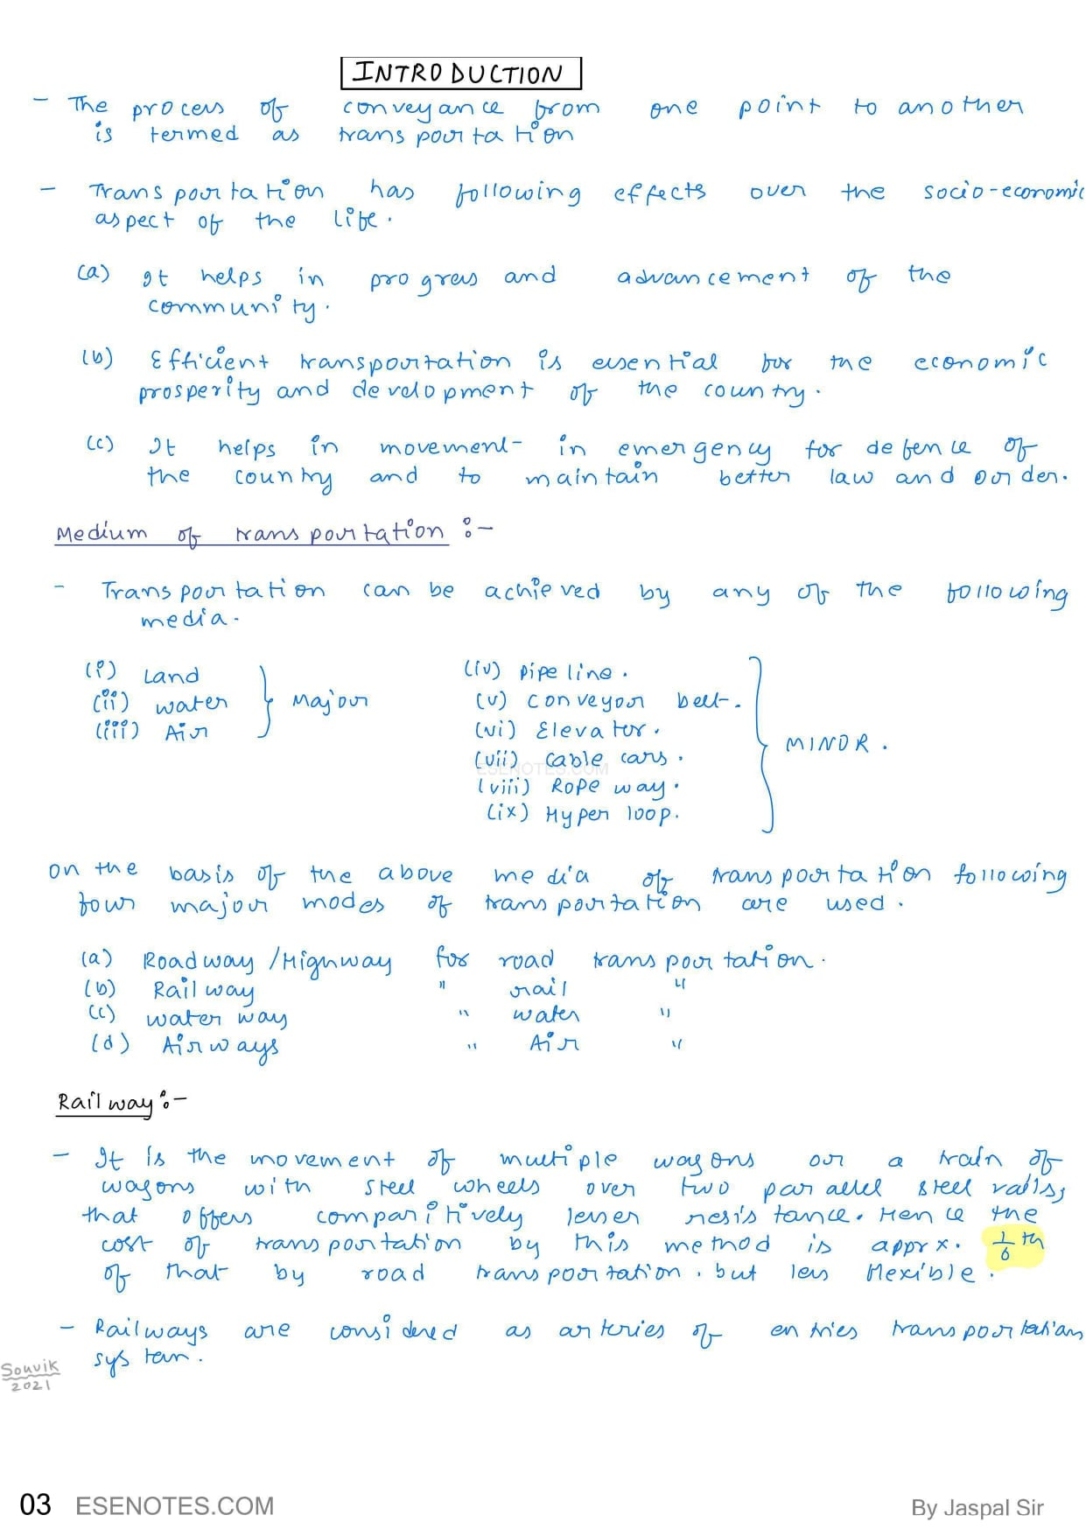 INTRODUCTION
- The process of conveyance from one point to another
is termed as transportation
- Transportation has following effects over the socio-economic
aspect of the life.
(a) It helps in progress and advancement of the
community.
(b) Efficient transportation is essential for the economic
prosperity and development of the country.
(c) It helps in movement in emergency for defence of
the country and to maintain better law and order.
Medium of transportation :-
- Transportation can be achieved by any of the following
media.
(i) Land
(ii) water
(iii) Air
Major
(iv) Pipe line.
(v) conveyor belt.
(vi) Elevator.
(vii) cable cars.
ESENOTES.COM
(viii) Rope way.
(ix) Hyper loop.
MINOR.
on the basis of the above media of transportation following
four major modes of transportation are used.
(a) Roadway/Highway for road transportation.
(b) Railway " rail "
(c) water way " water "
(d) Airways " Air "
Railway :-
- It is the movement of multiple wagons or a train of
wagons with steel wheels over two parallel steel rails,
that offers comparitively lesser resistance. Hence the
cost of transportation by this method is apprx. 1/6 th
of that by road transportation. but less flexible.
- Railways are considered as arteries of entries transportation
system.
Souvik
2021
03 ESENOTES.COM
By Jaspal Sir